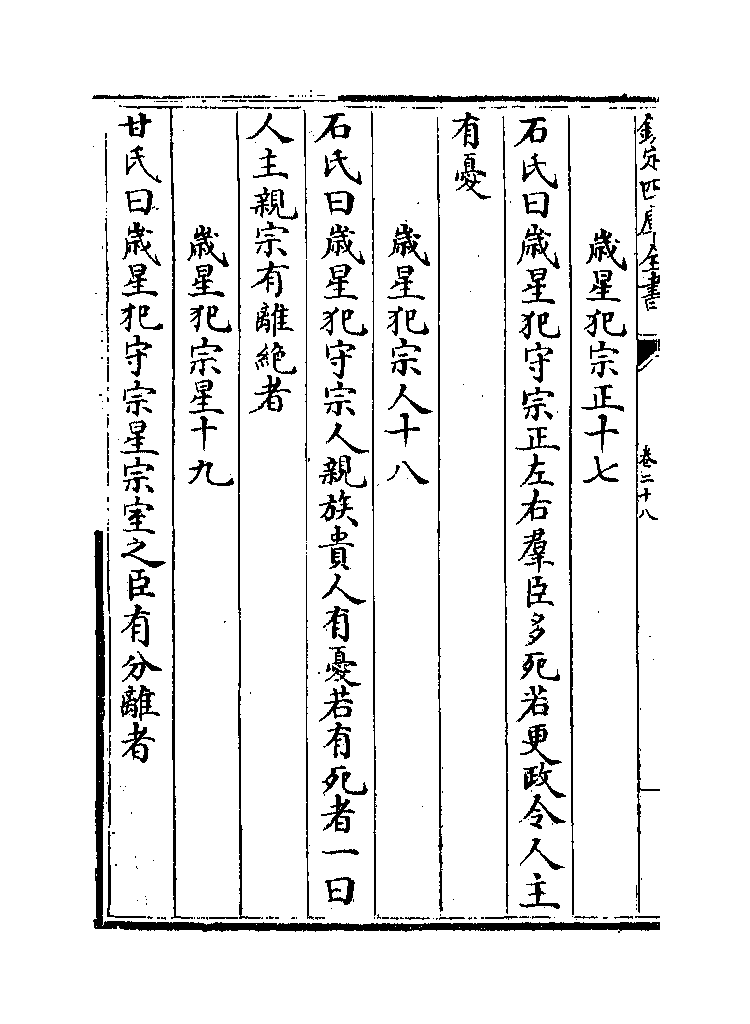 欽定四庫全書
卷二十八
歲星犯宗正十七
石氏曰歲星犯守宗正左右羣臣多死若更政令人主
有憂
歲星犯宗人十八
石氏曰歲星犯守宗人親族貴人有憂若有死者一曰
人主親宗有離絶者
歲星犯宗星十九
甘氏曰歲星犯守宗星宗室之臣有分離者